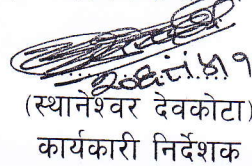 (स्थानेश्वर देवकोटा)
कार्यकारी निर्देशक